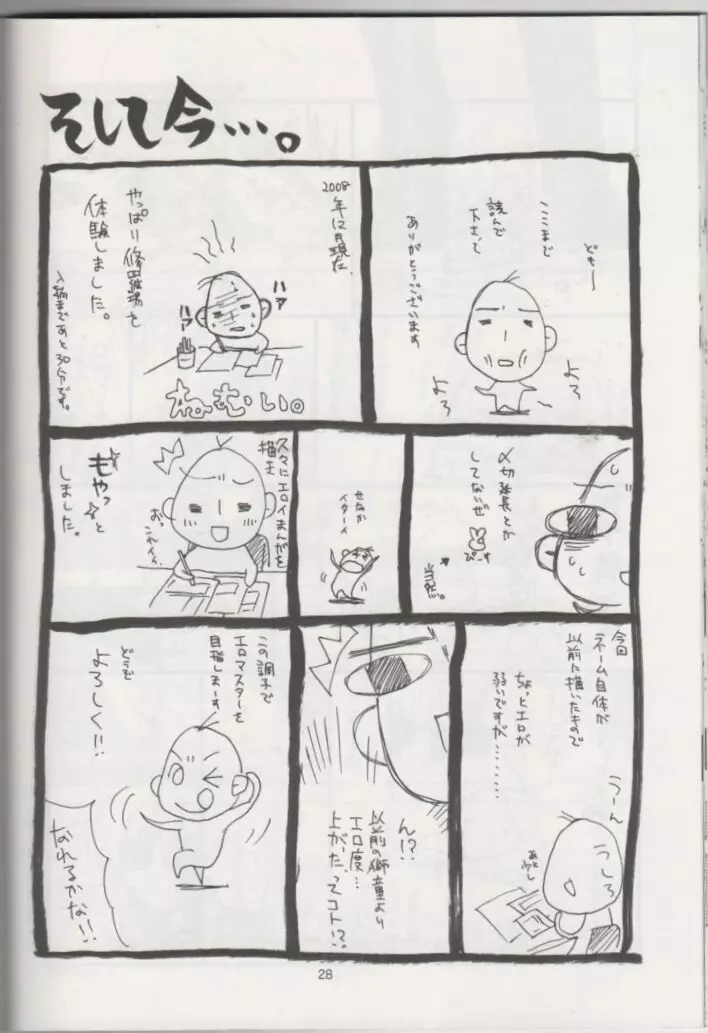 そして今…。
ども〜
ここまで
読んで
下さって
ありがとうございます
よろ
よろ
2008
年12月現在、
やっぱり修羅場を
体験しました。
入稿まであと30分です。
ハア
ハア
ねむい。
〆切延長とか
してないぜ
ぴーす
当然。
せなか
イターイ
久々にエロイまんがを
描き
もやっと
しました。
お、
これイイ、
今回
ネーム自体が
以前に描いたもので
ちょっとエロが
弱いですが………
うーん
うしろ
あと
少し
ん!?
以前の獅童より
エロ度…
上がった、ってコト!?
この調子で
エロマスターを
目指しまーす
どうぞ
よろしく!!
なれるかな!!
28